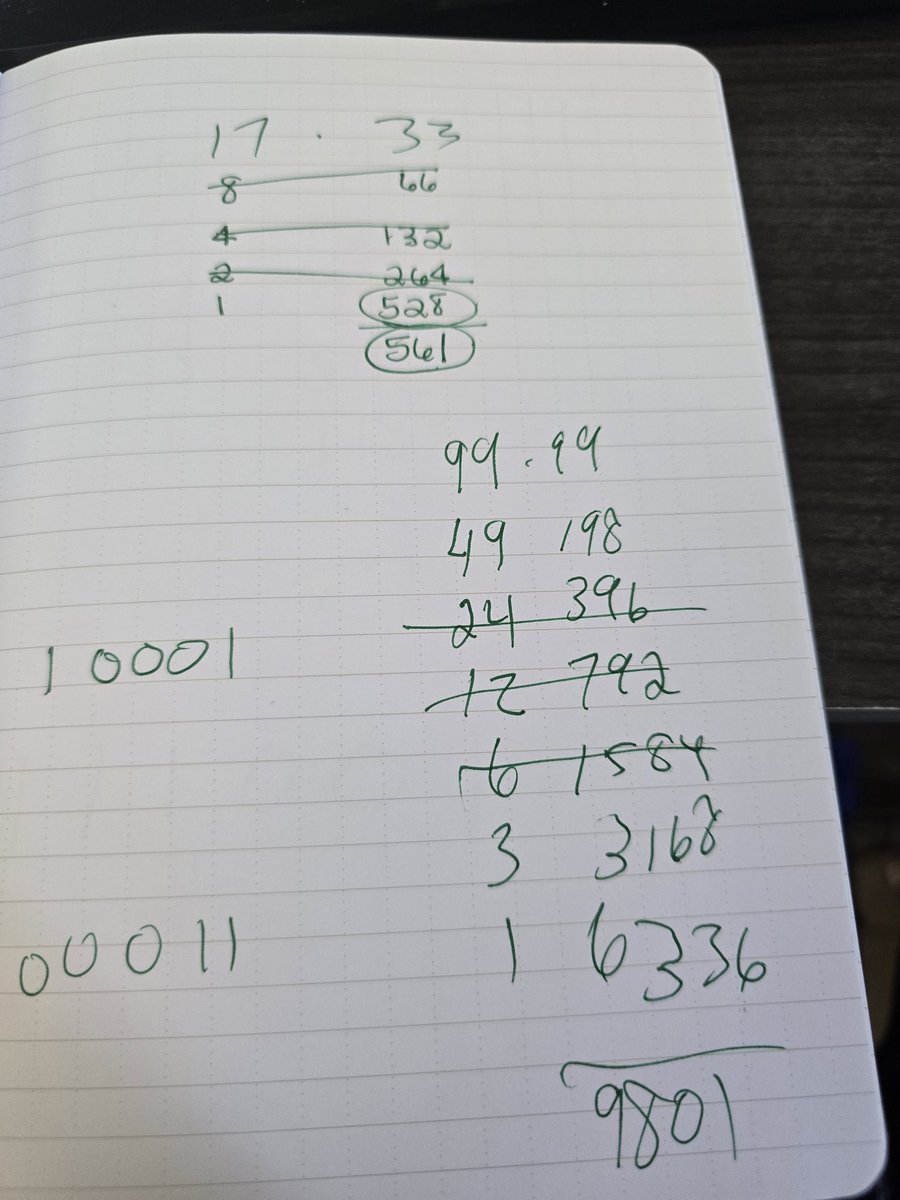 17 · 33
8 66
4 132
2 264
1 528
561
99 · 99
49 198
24 396
10001
12 792
6 1584
3 3168
00011
1 6336
9801